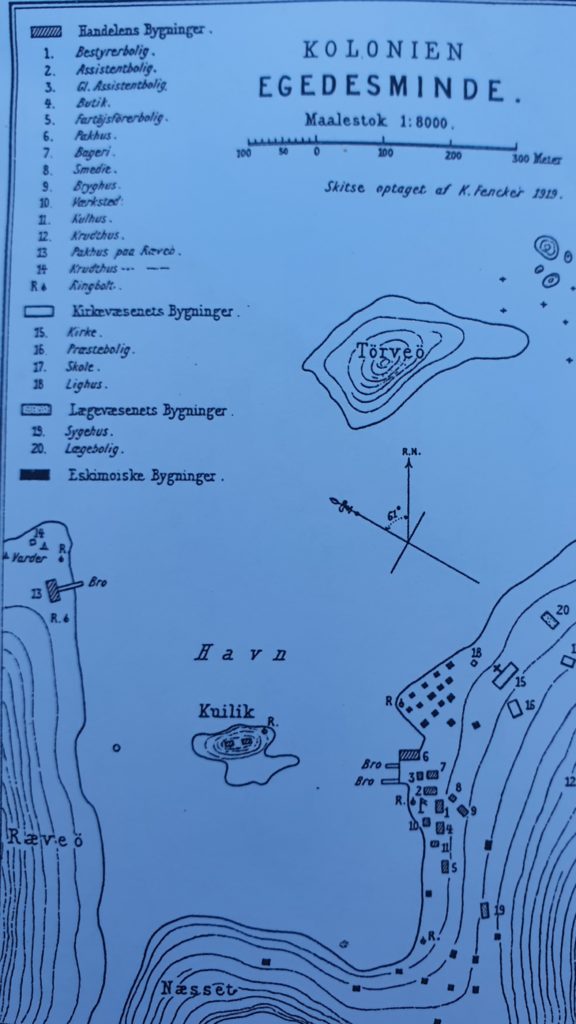 Handelens Bygninger.
1. Bestyrerbolig.
2. Assistentbolig.
3. Gl. Assistentbolig.
4. Butik.
5. Fartöjsförerbolig.
6. Pakhus.
7. Bageri.
8. Smedie.
9. Bryghus.
10. Værksted.
11. Kulhus.
12. Krudthus.
13 Pakhus paa Ræveö.
14 Krudthus --- —
R. Ringbolt.
Kirkevæsenets Bygninger.
15. Kirke.
16. Præstebolig.
17. Skole.
18 Lighus.
Lægevæsenets Bygninger.
19. Sygehus.
20. Lægebolig.
Eskimoiske Bygninger.
KOLONIEN
EGEDESMINDE.
Maalestok 1:8000.
100 50 0 100 200 300 Meter
Skitse optaget af K. Fencker 1919.
Törveö
R.N.
61°
14
Varder
R.
13
Bro
R.
20
Havn
18
15
1
R
16
Kuilik
R.
6
Bro
3
7
Bro
2
8
R.
1
9
12
10
4
11
Ræveö
5
19
R.
Næsset